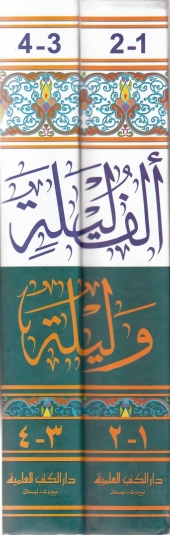 2-1
4-3
ألف ليلة
وليلة
١-٢
٣-٤
دار الكتب العلمية
بيروت - لبنان
دار الكتب العلمية
بيروت - لبنان